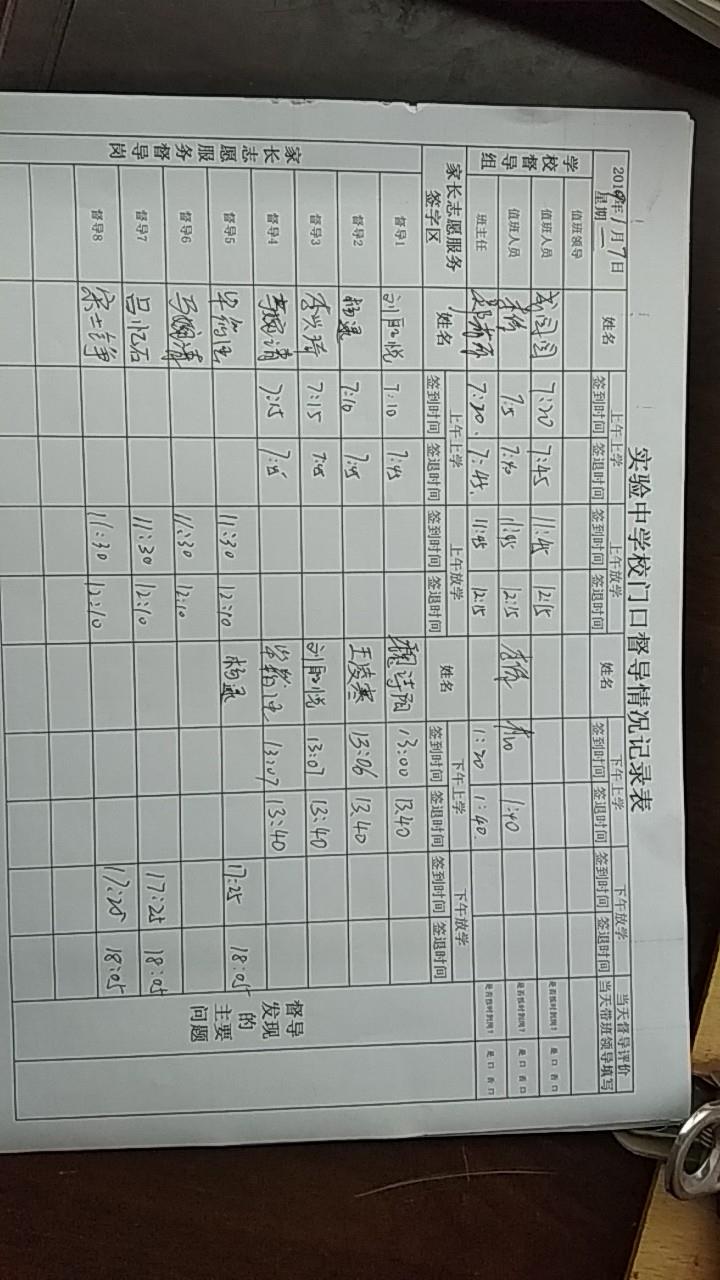 实验中学校门口督导情况记录表
2019年1月7日
星期二
姓名 上午上学 上午放学 姓名 下午上学 下午放学 当天督导评价
签到时间 签退时间 签到时间 签退时间 签到时间 签退时间 签到时间 签退时间 当天带班领导填写
学校督导组
值班领导
值班人员 7:20 7:45 11:45 12:15 是否按时到岗? 是口 否口
值班人员 李伟 7:5 7:40 11:45 12:15 李伟 1:40 是否按时到岗? 是口 否口
班主任 7:20 7:45 11:45 12:15 1:20 1:40 是否按时到岗? 是口 否口
家长志愿服务 姓名 上午上学 上午放学 姓名 下午上学 下午放学
签字区 签到时间 签退时间 签到时间 签退时间 签到时间 签退时间 签到时间 签退时间
家长志愿服务督导岗
督导1 7:10 7:45 魏诗雨 13:00 13:40
督导2 杨通 7:10 7:45 王凌寒 13:06 13:40
督导3 李兴琦 7:15 7:45 13:07 13:40
督导4 7:15 7:45 13:07 13:40
督导5 11:30 12:10 杨通 17:25 18:05
督导6 11:30 12:10
督导7 吕忆石 11:30 12:10 17:25 18:05
督导8 宋士铮 11:30 12:10 17:25 18:05
督导
发现
的
主要
问题